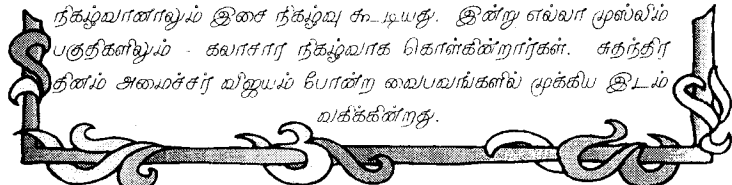 நிகழ்வானாலும் இசை நிகழ்வு கூடியது. இன்று எல்லா முஸ்லிம்
பகுதிகளிலும் - கலாசார நிகழ்வாக கொள்கின்றார்கள். சுதந்திர
தினம் அமைச்சர் விஜயம் போன்ற வைபவங்களில் முக்கிய இடம்
வகிக்கின்றது.